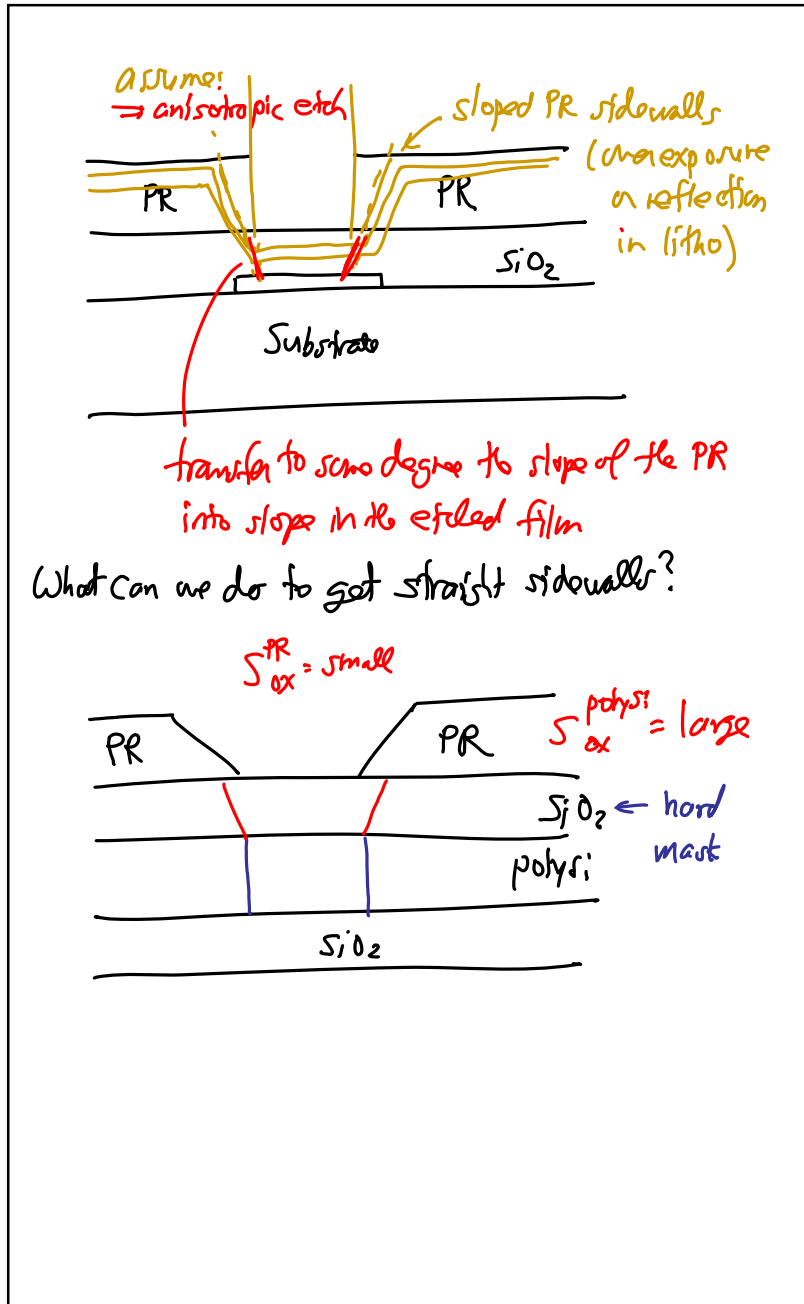 assume:
⇒ anisotropic etch
sloped PR sidewalls
(overexposure
or reflection
in litho)
PR
PR
SiO₂
Substrate
transfer to some degree the slope of the PR
into slope in the etched film
What can we do to get straight sidewalls?
S_ox^PR = small
S_ox^polysi = large
PR
PR
SiO₂ ← hard
mask
polysi
SiO₂